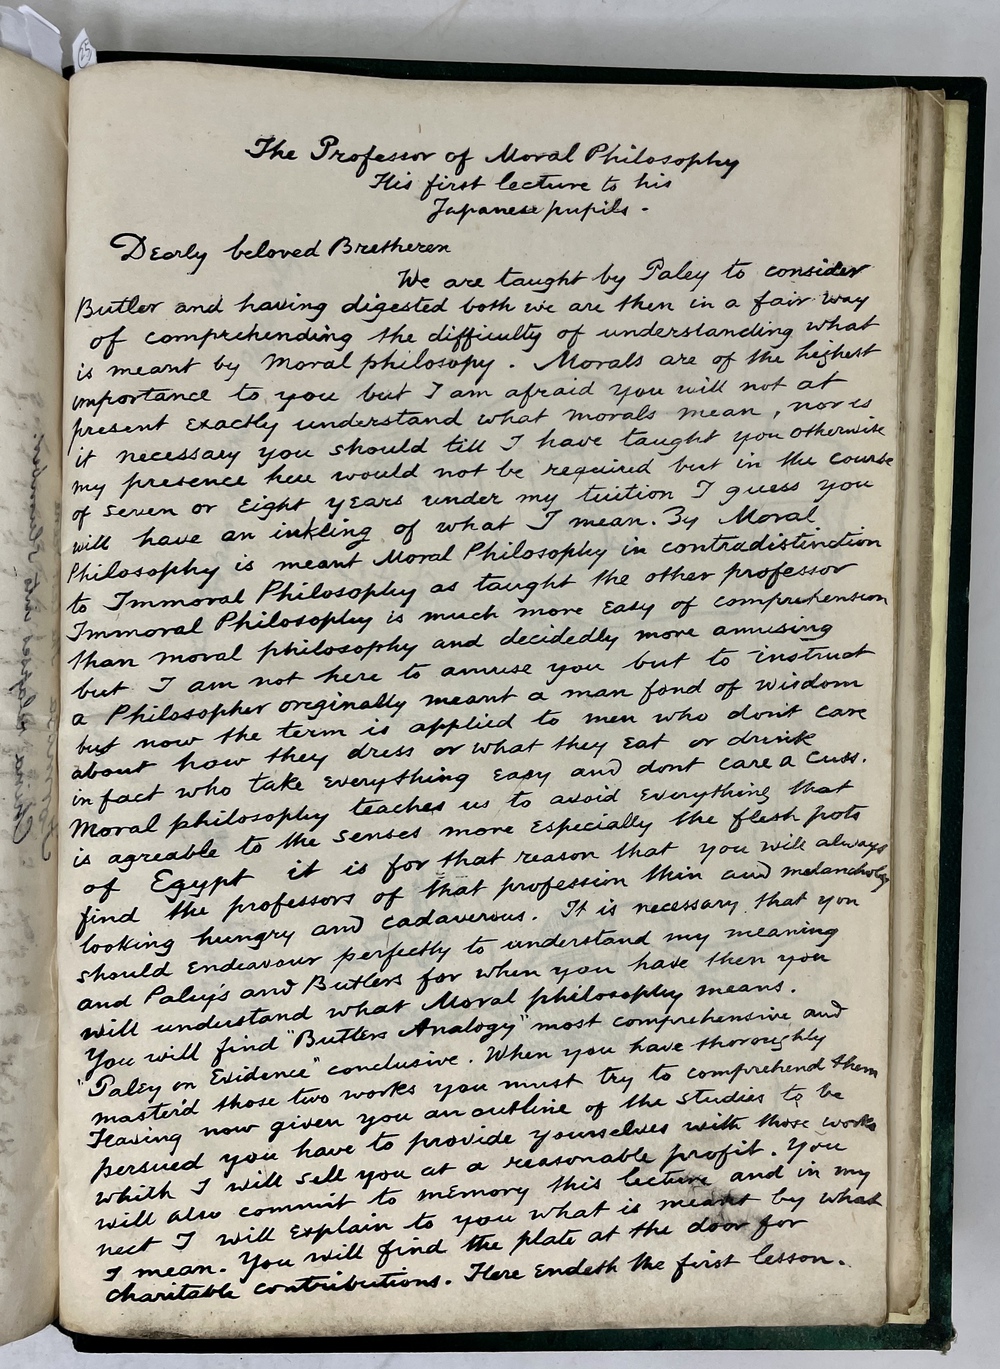 25
The Professor of Moral Philosophy
His first lecture to his
Japanese pupils -
Dearly beloved Bretheren
We are taught by Paley to consider
Butler and having digested both we are then in a fair way
of comprehending the difficulty of understanding what
is meant by Moral philosopy. Morals are of the highest
importance to you but I am afraid you will not at
present exactly understand what morals mean, nor is
it necessary you should till I have taught you otherwise
my presence here would not be required but in the course
of seven or Eight years under my tuition I guess you
will have an inkling of what I mean. By Moral
Philosophy is meant Moral Philosophy in contradistinction
to Immoral Philosophy as taught the other professor
Immoral Philosophy is much more Easy of comprehension
than moral philosophy and decidedly more amusing
but I am not here to amuse you but to instruct
a Philosopher originally meant a man fond of wisdom
but now the term is applied to men who dont care
about how they dress or what they Eat or drink
in fact who take Everything Easy and dont care a cuss.
Moral philosophy teaches us to avoid Everything that
is agreable to the senses more Especially the flesh pots
of Egypt it is for that reason that you will always
find the professors of that profession thin and melancholy
looking hungry and cadaverous. It is necessary that you
should Endeavour perfectly to understand my meaning
and Paley's and Butlers for when you have then you
will understand what Moral philosophy means.
You will find "Butlers Analogy" most comprehensive and
"Paley on Evidence" conclusive. When you have thoroughly
master'd those two works you must try to comprehend them
Having now given you an outline of the studies to be
persued you have to provide yourselves with those works
whith I will sell you at a reasonable profit. You
will also commit to memory this lecture and in my
nect I will Explain to you what is meant by what
I mean. You will find the plate at the door for
charitable contributions. Here Endeth the first lesson.